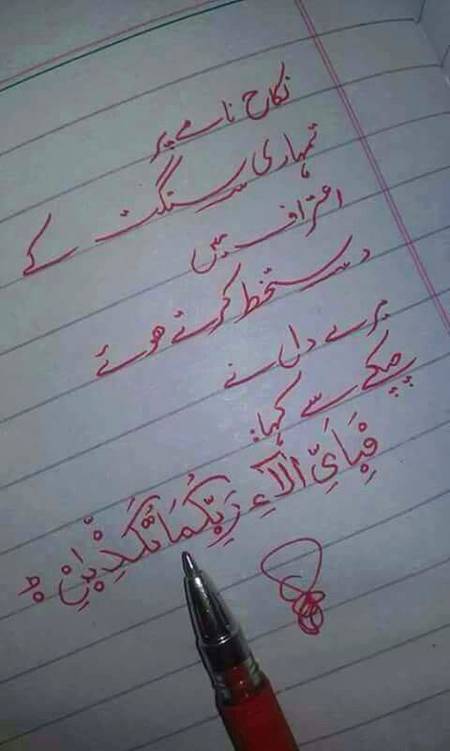 نکاح نامے پر
تمہاری سنگت کے
اعتراف میں
دستخط کرتے ہوئے
میرے دل نے
چپکے سے کہا:
فَبِاَيِّ اٰلَآءِ رَبِّكُمَا تُكَذِّبٰنِ